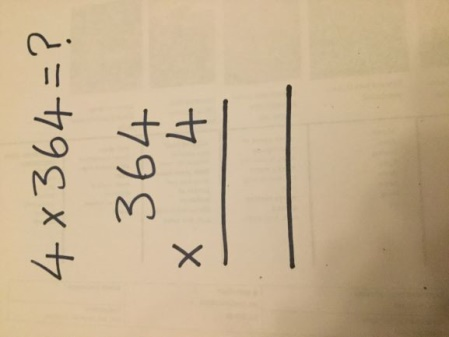 4 x 364 = ?
364
x 4